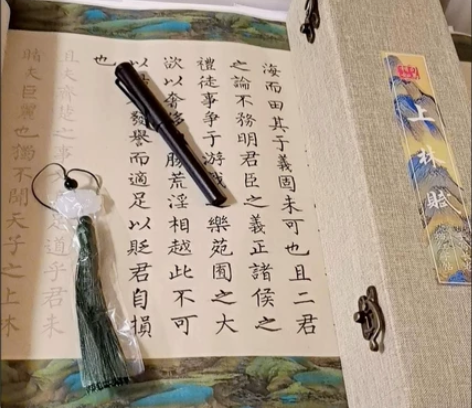 海而田其于義固未可也且二君
之論不務明君臣之義正諸侯之
禮徒事爭于游戲樂苑囿之大
欲以奢勝荒淫相越此不可
以發譽而適足以貶君自損
也
且夫齊楚之事道乎君未
睹夫巨麗也獨不聞天子之上林
上林賦